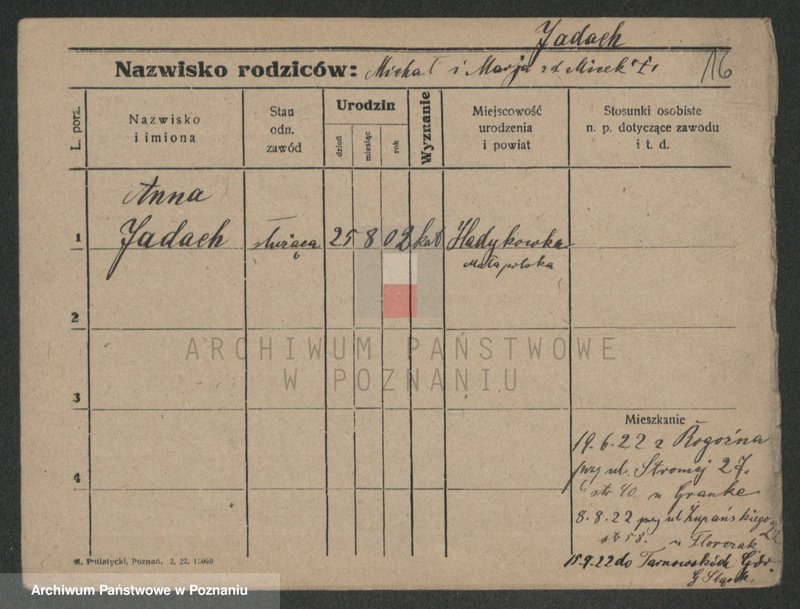 Jadach
Nazwisko rodziców: Michał i Marja z d. Micek
16
L. porz.
Nazwisko
i imiona
Stan
odn.
zawód
Urodzin
dzień
miesiąc
rok
Wyznanie
Miejscowość
urodzenia
i powiat
Stosunki osobiste
n. p. dotyczące zawodu
i t. d.
Anna
1 Jadach służąca 25 8 02 kat Hadykowka
Małapolska
2
ARCHIWUM PAŃSTWOWE
W POZNANIU
3
Mieszkanie
19.6.22 z Rogoźna
przy ul. Stromej 27.
4
str 40 u Granke
8.8.22 przy ul Żupańskiego
st 58. u Florczak
15.9.22 do Tarnowskich Gór
G Śląsk.
M. Putiatycki, Poznań. 2. 22. 10000
Archiwum Państwowe w Poznaniu